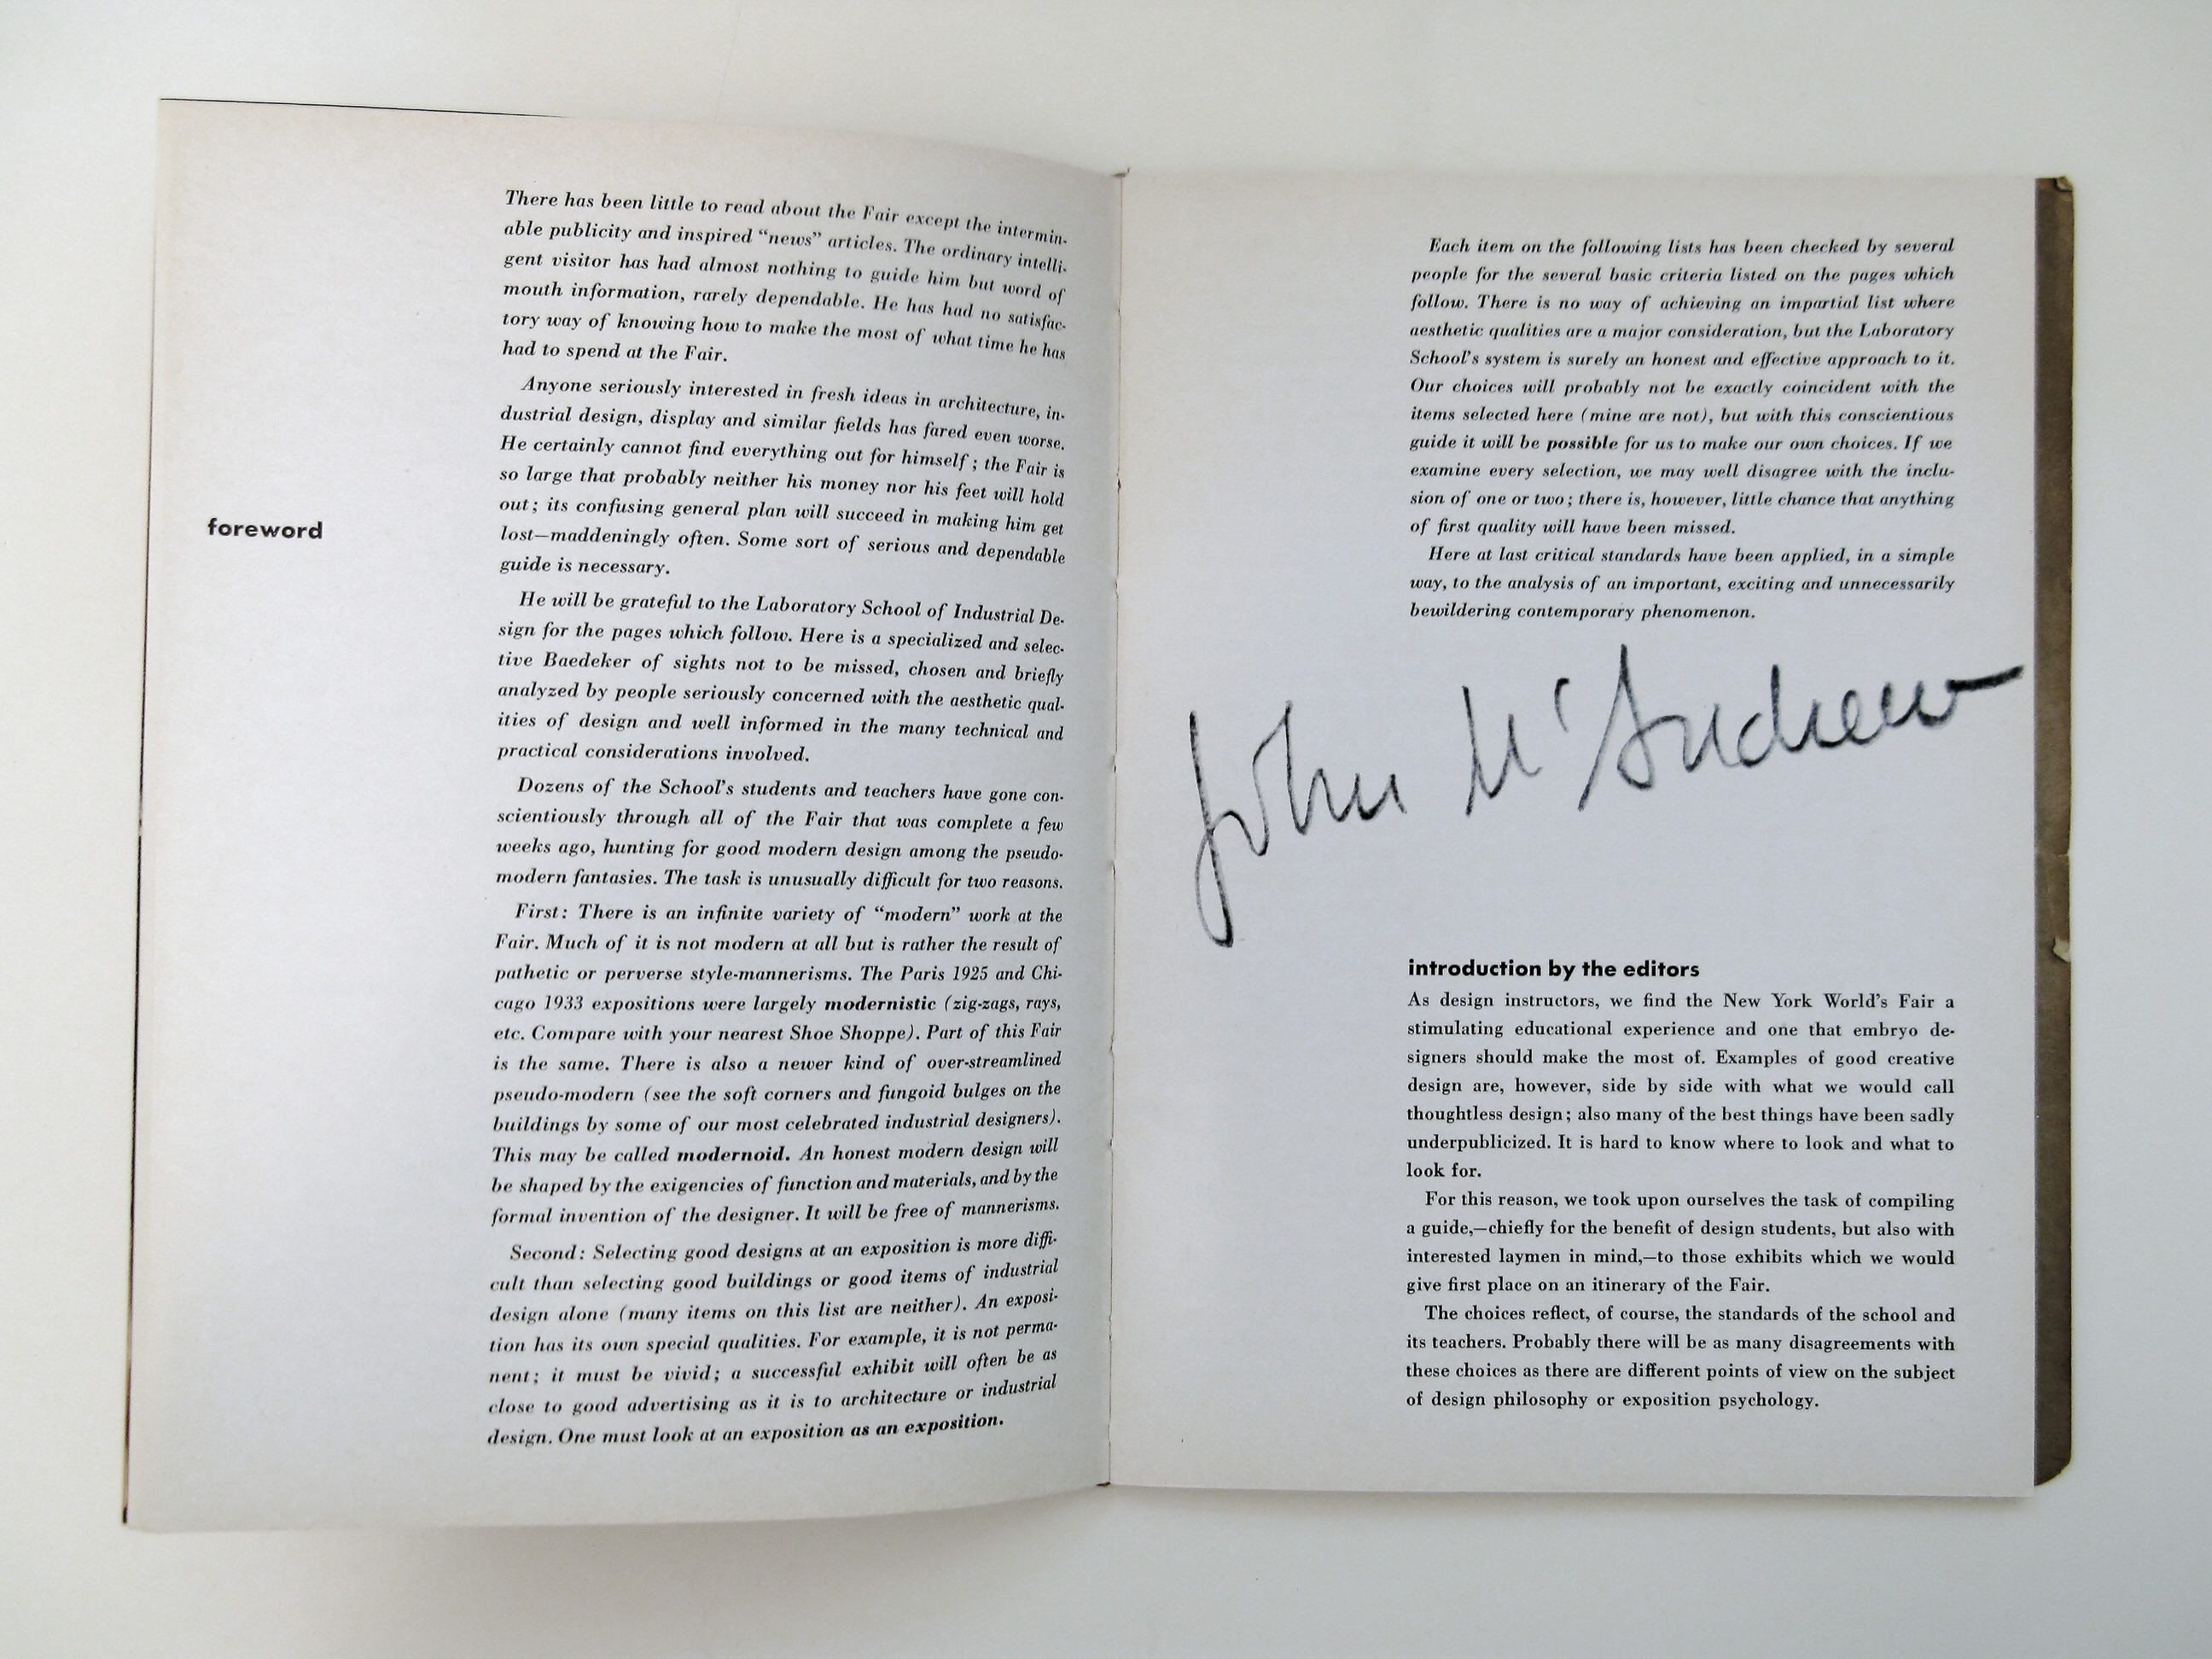 foreword
There has been little to read about the Fair except the intermin-
able publicity and inspired “news” articles. The ordinary intelli-
gent visitor has had almost nothing to guide him but word of
mouth information, rarely dependable. He has had no satisfac-
tory way of knowing how to make the most of what time he has
had to spend at the Fair.
Anyone seriously interested in fresh ideas in architecture, in-
dustrial design, display and similar fields has fared even worse.
He certainly cannot find everything out for himself; the Fair is
so large that probably neither his money nor his feet will hold
out; its confusing general plan will succeed in making him get
lost—maddeningly often. Some sort of serious and dependable
guide is necessary.
He will be grateful to the Laboratory School of Industrial De-
sign for the pages which follow. Here is a specialized and selec-
tive Baedeker of sights not to be missed, chosen and briefly
analyzed by people seriously concerned with the aesthetic qual-
ities of design and well informed in the many technical and
practical considerations involved.
Dozens of the School's students and teachers have gone con-
scientiously through all of the Fair that was complete a few
weeks ago, hunting for good modern design among the pseudo-
modern fantasies. The task is unusually difficult for two reasons.
First: There is an infinite variety of “modern” work at the
Fair. Much of it is not modern at all but is rather the result of
pathetic or perverse style-mannerisms. The Paris 1925 and Chi-
cago 1933 expositions were largely modernistic (zig-zags, rays,
etc. Compare with your nearest Shoe Shoppe). Part of this Fair
is the same. There is also a newer kind of over-streamlined
pseudo-modern (see the soft corners and fungoid bulges on the
buildings by some of our most celebrated industrial designers).
This may be called modernoid. An honest modern design will
be shaped by the exigencies of function and materials, and by the
formal invention of the designer. It will be free of mannerisms.
Second: Selecting good designs at an exposition is more diffi-
cult than selecting good buildings or good items of industrial
design alone (many items on this list are neither). An exposi-
tion has its own special qualities. For example, it is not perma-
nent; it must be vivid; a successful exhibit will often be as
close to good advertising as it is to architecture or industrial
design. One must look at an exposition as an exposition.
Each item on the following lists has been checked by several
people for the several basic criteria listed on the pages which
follow. There is no way of achieving an impartial list where
aesthetic qualities are a major consideration, but the Laboratory
School's system is surely an honest and effective approach to it.
Our choices will probably not be exactly coincident with the
items selected here (mine are not), but with this conscientious
guide it will be possible for us to make our own choices. If we
examine every selection, we may well disagree with the inclu-
sion of one or two; there is, however, little chance that anything
of first quality will have been missed.
Here at last critical standards have been applied, in a simple
way, to the analysis of an important, exciting and unnecessarily
bewildering contemporary phenomenon.
John M'Andrew
introduction by the editors
As design instructors, we find the New York World's Fair a
stimulating educational experience and one that embryo de-
signers should make the most of. Examples of good creative
design are, however, side by side with what we would call
thoughtless design; also many of the best things have been sadly
underpublicized. It is hard to know where to look and what to
look for.
For this reason, we took upon ourselves the task of compiling
a guide,—chiefly for the benefit of design students, but also with
interested laymen in mind,—to those exhibits which we would
give first place on an itinerary of the Fair.
The choices reflect, of course, the standards of the school and
its teachers. Probably there will be as many disagreements with
these choices as there are different points of view on the subject
of design philosophy or exposition psychology.